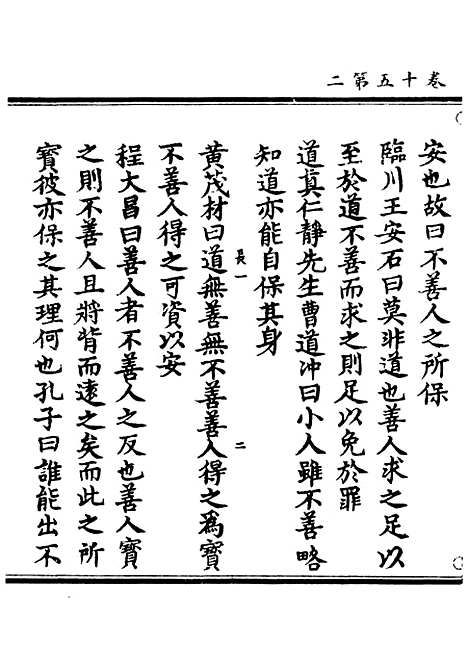 二第五十卷
安也故曰不善人之所保
臨川王安石曰莫非道也善人求之足以
至於道不善而求之則足以免於罪
道真仁靜先生曹道冲曰小人雖不善略
知道亦能自保其身
長一
二
黃茂材曰道無善無不善善人得之為寳
不善人得之可資以安
程大昌曰善人者不善人之反也善人寳
之則不善人且將背而遠之矣而此之所
寳彼亦保之其理何也孔子曰誰能出不